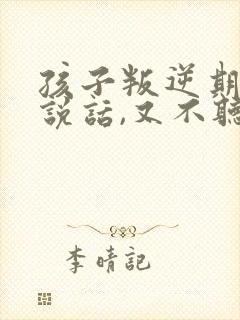 孩子叛逆期
說話,又不聽
李晴記